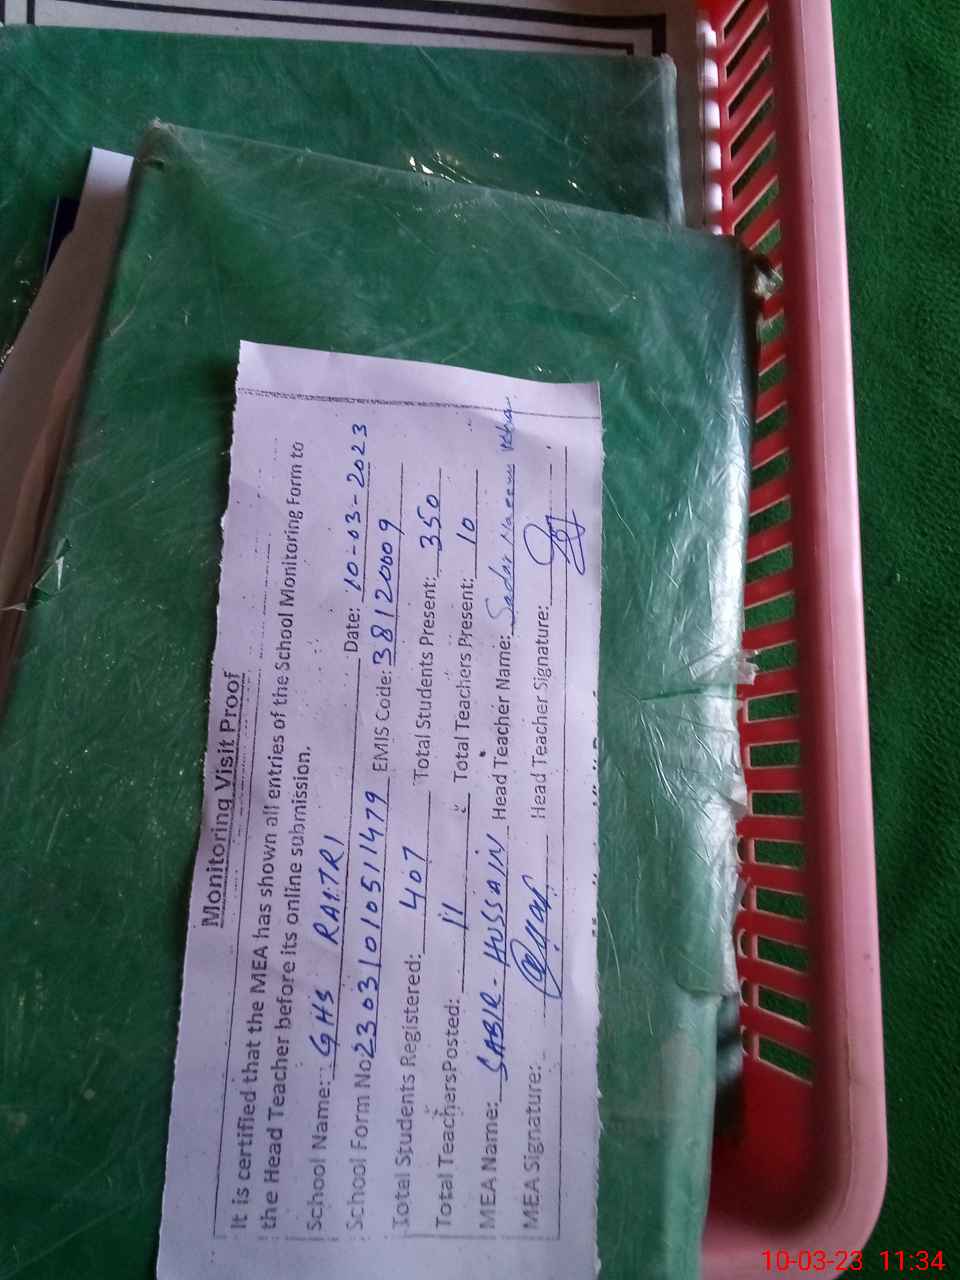 Monitoring Visit Proof
It is certified that the MEA has shown all entries of the School Monitoring Form to
the Head Teacher before its online submission.
School Name: GHS Date: 10-03-2023
School Form No: 23031010511479 EMIS Code: 38120009
Total Students Registered: 407 Total Students Present: 350
Total Teachers Posted: 11 Total Teachers Present: 10
MEA Name: SABIR-HUSSAIN Head Teacher Name:
MEA Signature: Head Teacher Signature:
10-03-23 11:34